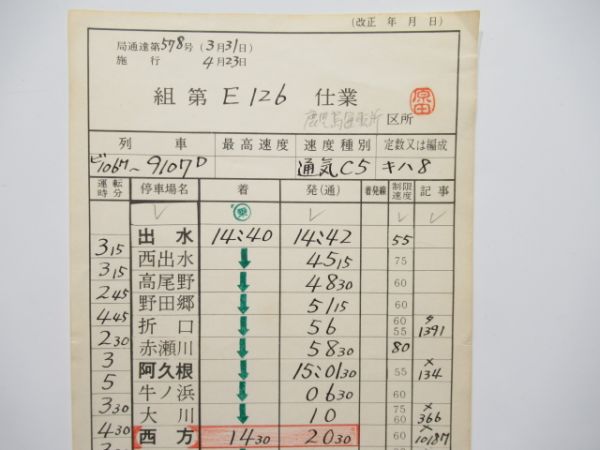 (改正 年 月 日)
局通達第578号 (3月31日)
施行 4月23日
組第 E126 仕業
原田
鹿児島運転所 区所
列車 最高速度 速度種別 定数又は編成
9107D 通気C5 キハ8
運転時分 停車場名 着 発(通) 着発線 制限速度 記事
出水 14:40 14:42 55
3 15 西出水 45 15 75
3 15 高尾野 48 30 60
2 45 野田郷 51 15 60
4 45 折口 56 60 55 1391
2 30 赤瀬川 58 30 80
3 阿久根 15:01 30 55 × 134
5 牛ノ浜 06 30 60
3 30 大川 10 75 60 × 366
4 30 西方 14 30 20 30 60 × 1018D